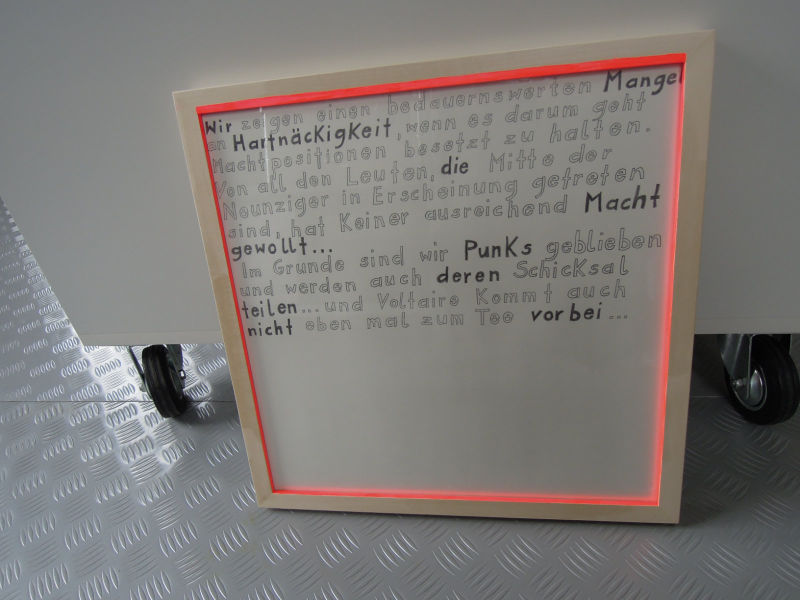 Wir zeigen einen bedauernswerten Mangel
an Hartnäckigkeit, wenn es darum geht
Machtpositionen besetzt zu halten.
Von all den Leuten, die Mitte der
Neunziger in Erscheinung getreten
sind, hat Keiner ausreichend Macht
gewollt...
Im Grunde sind wir Punks geblieben
und werden auch deren Schicksal
teilen... und Voltaire Kommt auch
nicht eben mal zum Tee vorbei...